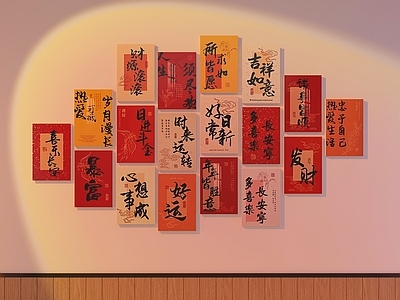 财源滚滚
人生
须尽欢
所求
皆如愿
吉祥
如意
热爱
可抵
岁月漫长
日进斗金
时来运转
好运
日新
常新
多喜乐
长安宁
诸事皆顺
忠于自己
热爱生活
喜乐长安
暴富
心想
事成
好运
年年胜意
多喜乐
长安宁
发财